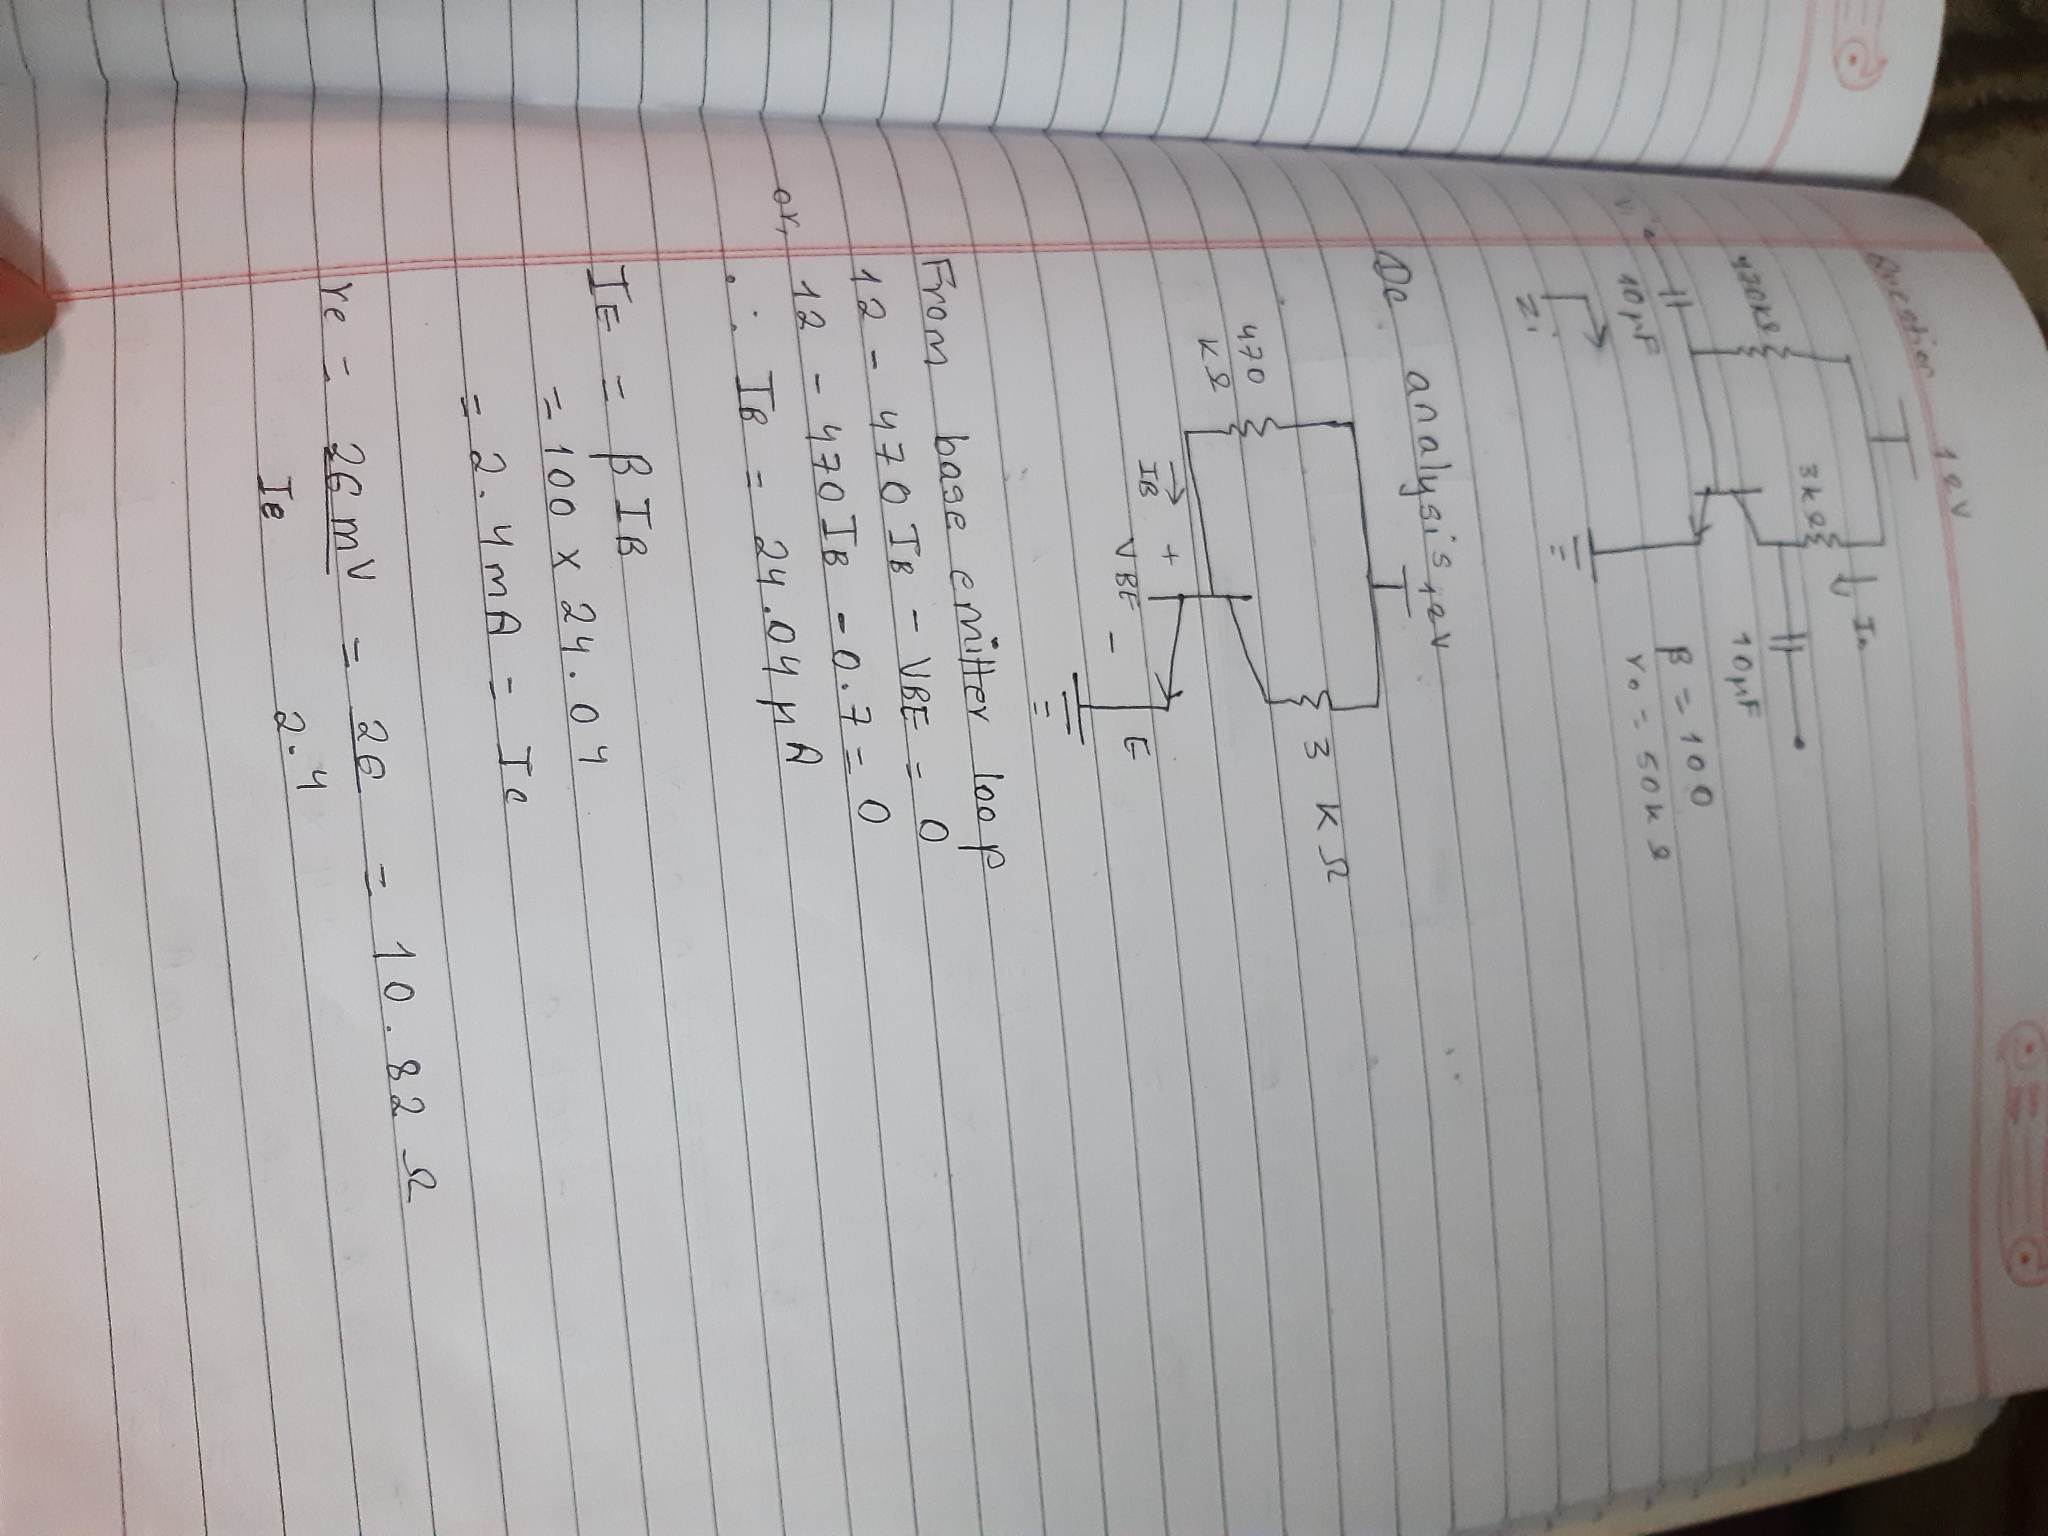 Question
12V
470kΩ
3kΩ
Io
10μF
10μF
Vi
Zi
β = 100
r₀ = 50kΩ
Dc analysis,
12V
470
kΩ
3 KΩ
IB
+
VBE
-
E
From base emitter loop
12 - 470IB - VBE = 0
or, 12 - 470IB - 0.7 = 0
∴ IB = 24.04μA
IE = βIB
= 100 x 24.04
= 2.4mA = Ie
re = 26mV / Ie = 26 / 2.4 = 10.82Ω